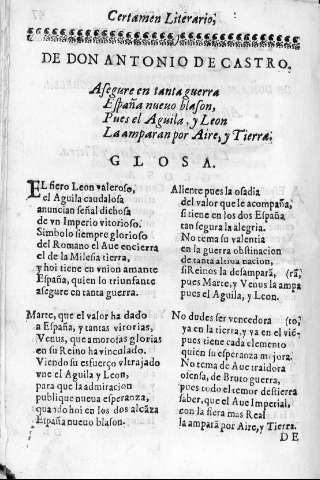 Certamen Literario,
DE DON ANTONIO DE CASTRO.
Asegure en tanta guerra
España nueuo blason,
Pues el Aguila, y Leon
La amparan por Aire, y Tierra.
GLOSA.
EL fiero Leon valeroso,
el Aguila caudalosa
anuncian señal dichosa
de vn Imperio vitorioso.
Simbolo siempre glorioso
del Romano el Aue encierra
el de la Milesia tierra,
y hoi tiene en vnion amante
España, quien lo triunfante
asegure en tanta guerra.
Marte, que el valor ha dado
a España, y tantas vitorias,
Venus, que amorosas glorias
en su Reino ha vinculado.
Viendo su esfuerço vltrajado
vne el Aguila y Leon,
para que la admiracion
publique nueua esperança,
quando hoi en los dos alcãza
España nueuo blason.
Aliente pues la osadia
del valor que le acompaña,
si tiene en los dos España
tan segura la alegria.
No tema su valentia
en la guerra obstinacion
de tanta altiua nacion,
si Reinos la desampará, (rã,
pues Marte, y Venus la ampa
pues el Aguila, y Leon.
No dudes ser vencedora (to,
ya en la tierra, y ya en el viẽ-
pues tiene cada elemento
quien su esperança mejora.
No tema de Aue traidora
ofensa, de Bruto guerra,
pues todo el temor destierra
saber, que el Aue Imperial,
con la fiera mas Real
la amparã por Aire, y Tierra.
DE